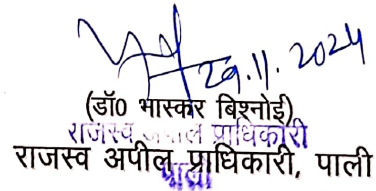 29.11.2024
(डॉ0 भास्कर बिश्नोई)
राजस्व अपील प्राधिकारी
राजस्व अपील प्राधिकारी, पाली
पाली